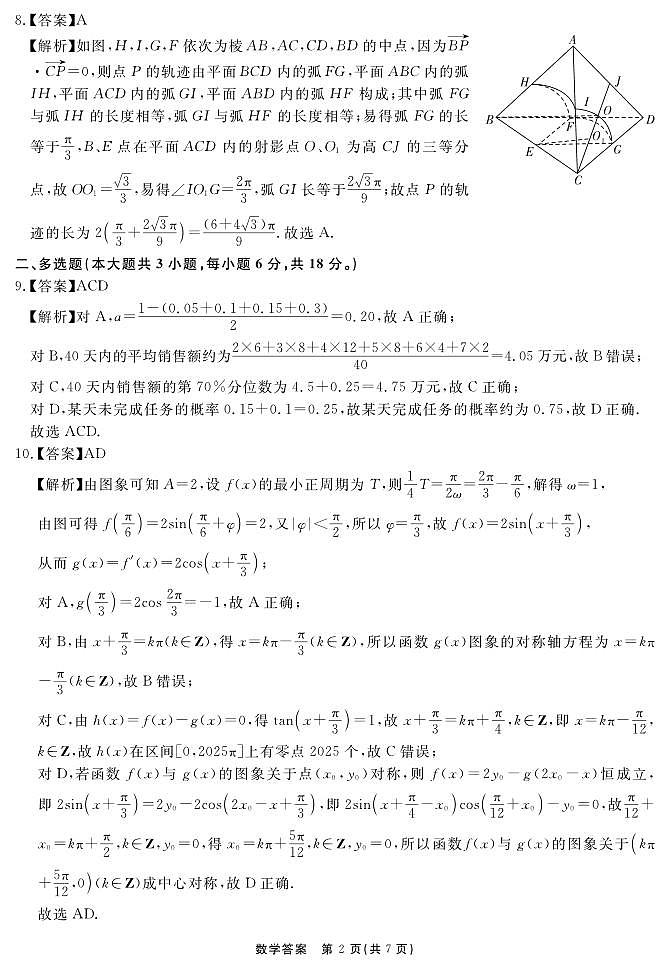 8.【答案】A
【解析】如图,H,I,G,F 依次为棱 AB,AC,CD,BD 的中点,因为$\overrightarrow{BP}$
·$\overrightarrow{CP}$=0,则点 P 的轨迹由平面 BCD 内的弧 FG,平面 ABC 内的弧
IH,平面 ACD 内的弧 GI,平面 ABD 内的弧 HF 构成;其中弧 FG
与弧 IH 的长度相等,弧 GI 与弧 HF 的长度相等;易得弧 FG 的长
等于$\frac{π}{3}$,B、E 点在平面 ACD 内的射影点 O、O₁ 为高 CJ 的三等分
点,故 OO₁=$\frac{\sqrt{3}}{3}$,易得∠IO₁G=$\frac{2π}{3}$,弧 GI 长等于$\frac{2\sqrt{3}π}{9}$;故点 P 的轨
迹的长为 2($\frac{π}{3}$+$\frac{2\sqrt{3}π}{9}$)=$\frac{(6+4\sqrt{3})π}{9}$.故选 A.
A
H
J
I
O
B
F
D
O
E
G
C
二、多选题(本大题共 3 小题,每小题 6 分,共 18 分。)
9.【答案】ACD
【解析】对 A,a=$\frac{1-(0.05+0.1+0.15+0.3)}{2}$=0.20,故 A 正确;
对 B,40 天内的平均销售额约为$\frac{2×6+3×8+4×12+5×8+6×4+7×2}{40}$=4.05 万元,故 B 错误;
对 C,40 天内销售额的第 70%分位数为 4.5+0.25=4.75 万元,故 C 正确;
对 D,某天未完成任务的概率 0.15+0.1=0.25,故某天完成任务的概率约为 0.75,故 D 正确.
故选 ACD.
10.【答案】AD
【解析】由图象可知 A=2,设 f(x)的最小正周期为 T,则$\frac{1}{4}$T=$\frac{π}{2ω}$=$\frac{2π}{3}$-$\frac{π}{6}$,解得 ω=1,
由图可得 f($\frac{π}{6}$)=2sin($\frac{π}{6}$+φ)=2,又|φ|<$\frac{π}{2}$,所以 φ=$\frac{π}{3}$,故 f(x)=2sin(x+$\frac{π}{3}$),
从而 g(x)=f′(x)=2cos(x+$\frac{π}{3}$);
对 A,g($\frac{π}{3}$)=2cos $\frac{2π}{3}$=-1,故 A 正确;
对 B,由 x+$\frac{π}{3}$=kπ(k∈Z),得 x=kπ-$\frac{π}{3}$(k∈Z),所以函数 g(x)图象的对称轴方程为 x=kπ
-$\frac{π}{3}$(k∈Z),故 B 错误;
对 C,由 h(x)=f(x)-g(x)=0,得 tan(x+$\frac{π}{3}$)=1,故 x+$\frac{π}{3}$=kπ+$\frac{π}{4}$,k∈Z,即 x=kπ-$\frac{π}{12}$,
k∈Z,故 h(x)在区间[0,2025π]上有零点 2025 个,故 C 错误;
对 D,若函数 f(x)与 g(x)的图象关于点(x₀,y₀)对称,则 f(x)=2y₀-g(2x₀-x)恒成立,
即 2sin(x+$\frac{π}{3}$)=2y₀-2cos(2x₀-x+$\frac{π}{3}$),即 2sin(x+$\frac{π}{4}$-x₀)cos($\frac{π}{12}$+x₀)-y₀=0,故$\frac{π}{12}$+
x₀=kπ+$\frac{π}{2}$,k∈Z,y₀=0,得 x₀=kπ+$\frac{5π}{12}$,k∈Z,y₀=0,所以函数f(x)与 g(x)的图象关于(kπ
+$\frac{5π}{12}$,0)(k∈Z)成中心对称,故 D 正确.
故选 AD.
数学答案 第 2 页(共 7 页)